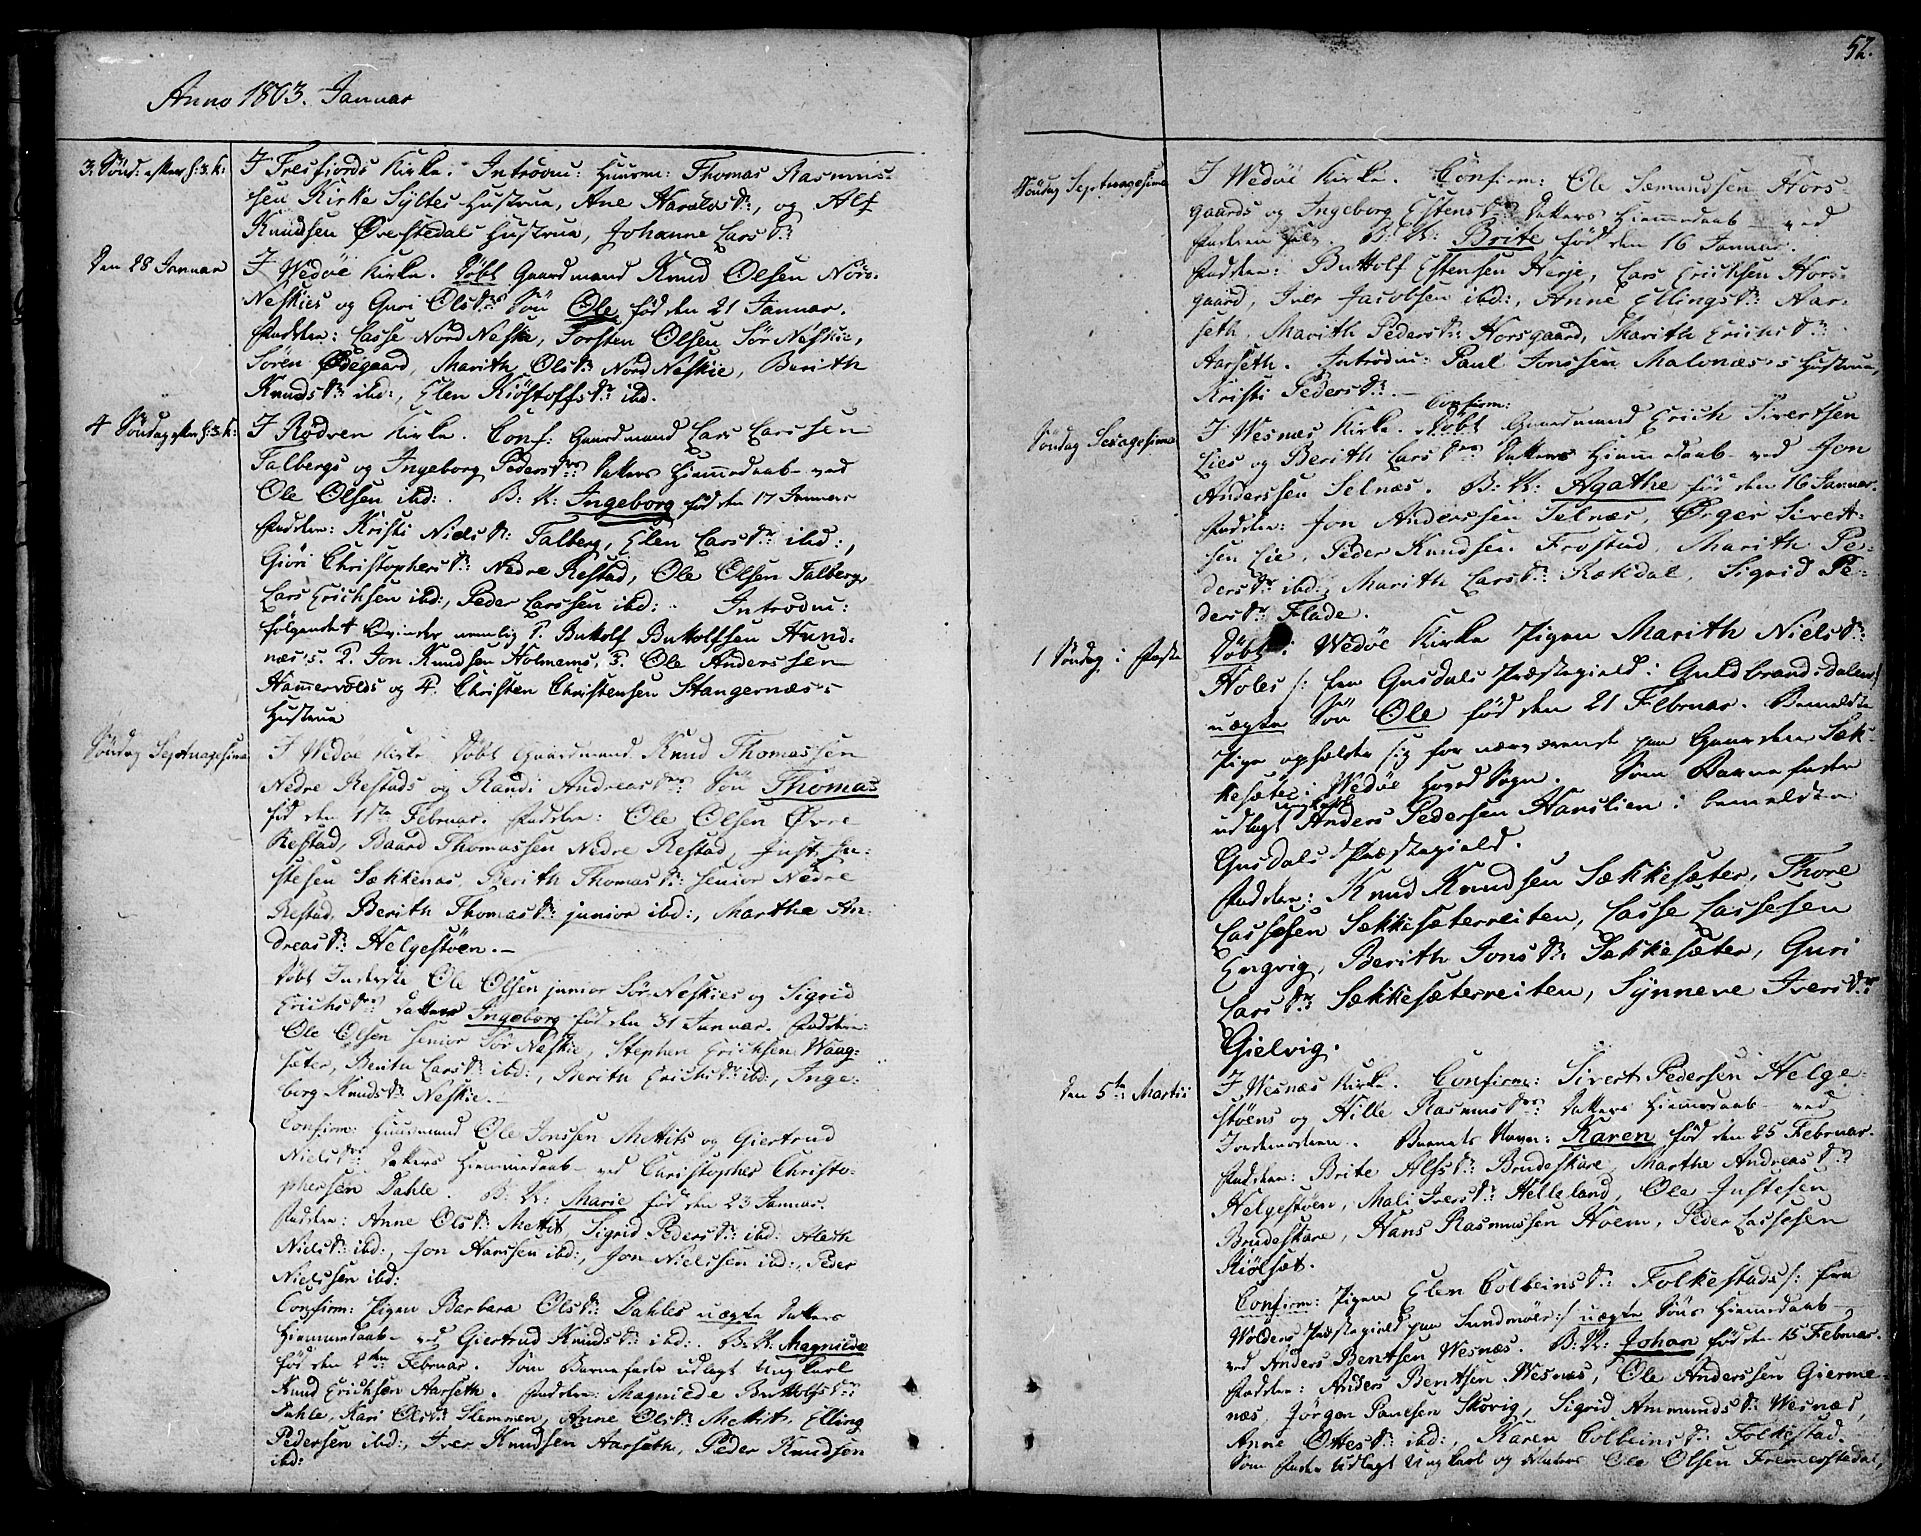 Anno 1803. Januar
3. Sönd: efter H: 3. K:
I Tresfiords Kirke. Introdu: Huusm: Thomas Rasmus-
sen Kirke Syltes Hustrue, Ane Haralds Dr:, og Alf
Knudsen Ørestedals Hustrue, Johanne Lars Dr:
Den 28 Januar
I Wedöe Kirke. Döbt Gaardmand Knud Olsen Nord
Neskies og Guri Ols Drs: Sön Ole föd den 21 Januar.
Fadder: Lasse Nord Neskie, Torsten Olsen Sör Neskie,
Sören Ødegaard, Marith Ols Dr: Nord Neskie, Berith
Knuds Dr: ibd:, Elen Kiöstoffs Dr: ibd.
4 Söndag efter H: 3. K:
I Rödven Kirke. Conf: Gaardmand Lars Larssen
Talbergs og Ingeborg Peders Drs: Datters Hiemmedaab ved
Ole Olsen ibd:. B: N: Ingeborg föd den 17 Januar
Fadder: Kristi Niels Dr: Talberg, Elen Lars Dr: ibd:,
Giöri Christophers Dr: Nedre Restad, Ole Olsen Talberg,
Lars Erichsen ibd:, Peder Larssen ibd: Introdu:
fölgende 4 Qvinder nemlig 1. Buttolf Buttolfsen Hund-
næs's. 2. Jon Knudsen Holmems, 3. Ole Anderssen
Hammervolds og 4. Christen Christensen Stangernæs's
Hustrue
Söndag Septuagesima
I Wedöe Kirke Döbt Gaardmand Knud Thomassen
Nedre Restads og Randi Andreas Drs: Sön Thomas
föd den 1ste Februar. Fadder: Ole Olsen Øvre
Restad, Baard Thomassen Nedre Restad, Just Ju-
stesen Sækkenæs, Berith Thomas Dr: senior Nedre
Restad, Berith Thomas Dr: junior ibd:, Martha An-
dreas Dr: Helgestöen.
Döbt Inderste Ole Olsen junior Sör Neskies og Sigrid
Erichs Drs: Datter Ingeborg föd den 31 Januar. Fadder:
Ole Olsen senior Sör Neskie, Stephen Erichsen Waag-
sæter, Lars Dr: ibd:, Berith Erichs Dr: ibd:, Inge-
borg Knuds Dr: Neskie.
Confirm: Huusmand Ole Jonssen Mettits og Giertrud
Niels Drs: Datters Hiemmedaab ved Christopher Christo-
phersen Dahle. B: N: Marie föd den 23 Januar.
Fadder: Anne Ols Dr: Mettit, Sigrid Peders Dr: ibd:
Niels Dr: ibd:, Jon Hanssen ibd:, Jon Nielssen ibd:, Peder
Nielssen ibd:
Confirm: Pigen Barbara Ols Dr: Dahles uægte Datters
Hiemmedaab ved Giertrud Knuds Dr: ibd: B: N: Magnilda
föd den 2den Februar. Som Barnefader udlagt Ungkarl
Knud Erichsen Aarseth. Fadder: Magnilde Buttolfs Dr:
Dahle, Kari Ols Dr: Slemmen, Anne Ols Dr: Mettit, Elling
Pedersen ibd:, Iver Knudsen Aarseth, Peder Knudsen
ibd:
52.
Söndag Septuagesima
I Wedöe Kirke. Confirm: Ole Sæmundsen Hors-
gaards og Ingeborg Estens Drs: Datters Hiemmedaab ved
Faderen selv. B: N: Brite föd den 16 Januar.
Fadder: Buttolf Estensen Herje, Lars Erichsen Hors-
gaard, Iver Jacobsen ibd:, Anne Ellings Dr: Aar-
seth, Marith Peders Dr: Horsgaard, Marith Erichs Dr:
Aarseth. Introdu: Paul Jonssen Malonæs's Hustrue,
Kristi Peders Dr:
Söndag Sexagesima
Confirm:
I Wesnæs Kirke. Döbt Gaardmand Erich Sivertsen
Lies og Berith Lars Drs: Datters Hiemmedaab ved Jon
Anderssen Selnæs. B: N: Agathe föd den 16 Januar.
Fadder: Jon Anderssen Selnæs, Ørger Sivert-
sen Lie, Peder Knudsen Frostad, Marith Pe-
ders Dr: ibd:, Marith Lars Dr: Rækdal, Sigrid Pe-
ders Dr: Flade.
1 Söndag i Faste
Döbt i Wedöe Kirke Pigen Marith Niels Dr:
Holes /: fra Gusdals Præstegield i Guldbrandsdalen :/
uægte Sön Ole föd den 21 Februar. Bemeldte
Pige opholder sig for nærværende paa Gaarden Sæk-
kesæter i Wedöe Hoved Sogn. Som Barnefader
ungkarl
udlagt Anders Pedersen Hanslien i bemeldte
Gusdals Præstegield.
Fadder: Knud Knudsen Sækkesæter, Thore
Lassesen Sækkesæterreiten, Lasse Lassesen
Engvig, Berith Jons Dr: Sækkesæter, Guri
Lars Dr: Sækkesæterreiten, Synneve Ivers Dr:
Gielvig.
Den 5te Martii
I Wesnæs Kirke. Confirm: Sivert Pedersen Helge-
stöens og Hille Rasmus Drs: Datters Hiemmedaab ved
Jordemoderen. Barnets Navn: Karen föd den 25 Februar.
Fadder: Brite Alfs Dr: Brudeskare, Martha Andreas Dr:
Helgestöen, Mali Ivers Dr: Helleland, Ole Justesen
Brudeskare, Hans Rasmussen Hoem, Peder Lassesen
Kiölset.
Confirm: Pigen Elen Colbeins Dr: Folkestads /: fra
Woldens Præstegield paa Sundmöer :/ uægte Söns Hiemmedaab
ved Anders Bentsen Wesnæs. B: N: Johan föd den 15 Februar.
Fadder: Anders Bentsen Wesnæs, Ole Anderssen Gierme-
næs, Jörgen Skorig, Sigrid Ammunds Dr: Wesnæs,
Anne Ottes Dr: ibd:, Karen Colbeins Dr: Folkestad.
Som Fader udlagt Ungkarl og Ole Olsen Fremerstedal,